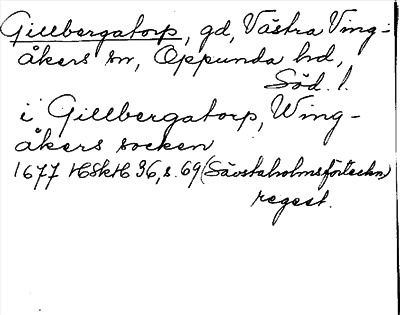 Gillbergatorp, gd, Västra Ving-
åkers sn, Oppunda hd,
Söd. l.
i Gillbergatorp, Wing-
åkers socken
1677 HSkH 36, s. 69 (Sävstaholmsförteckn)
regest.